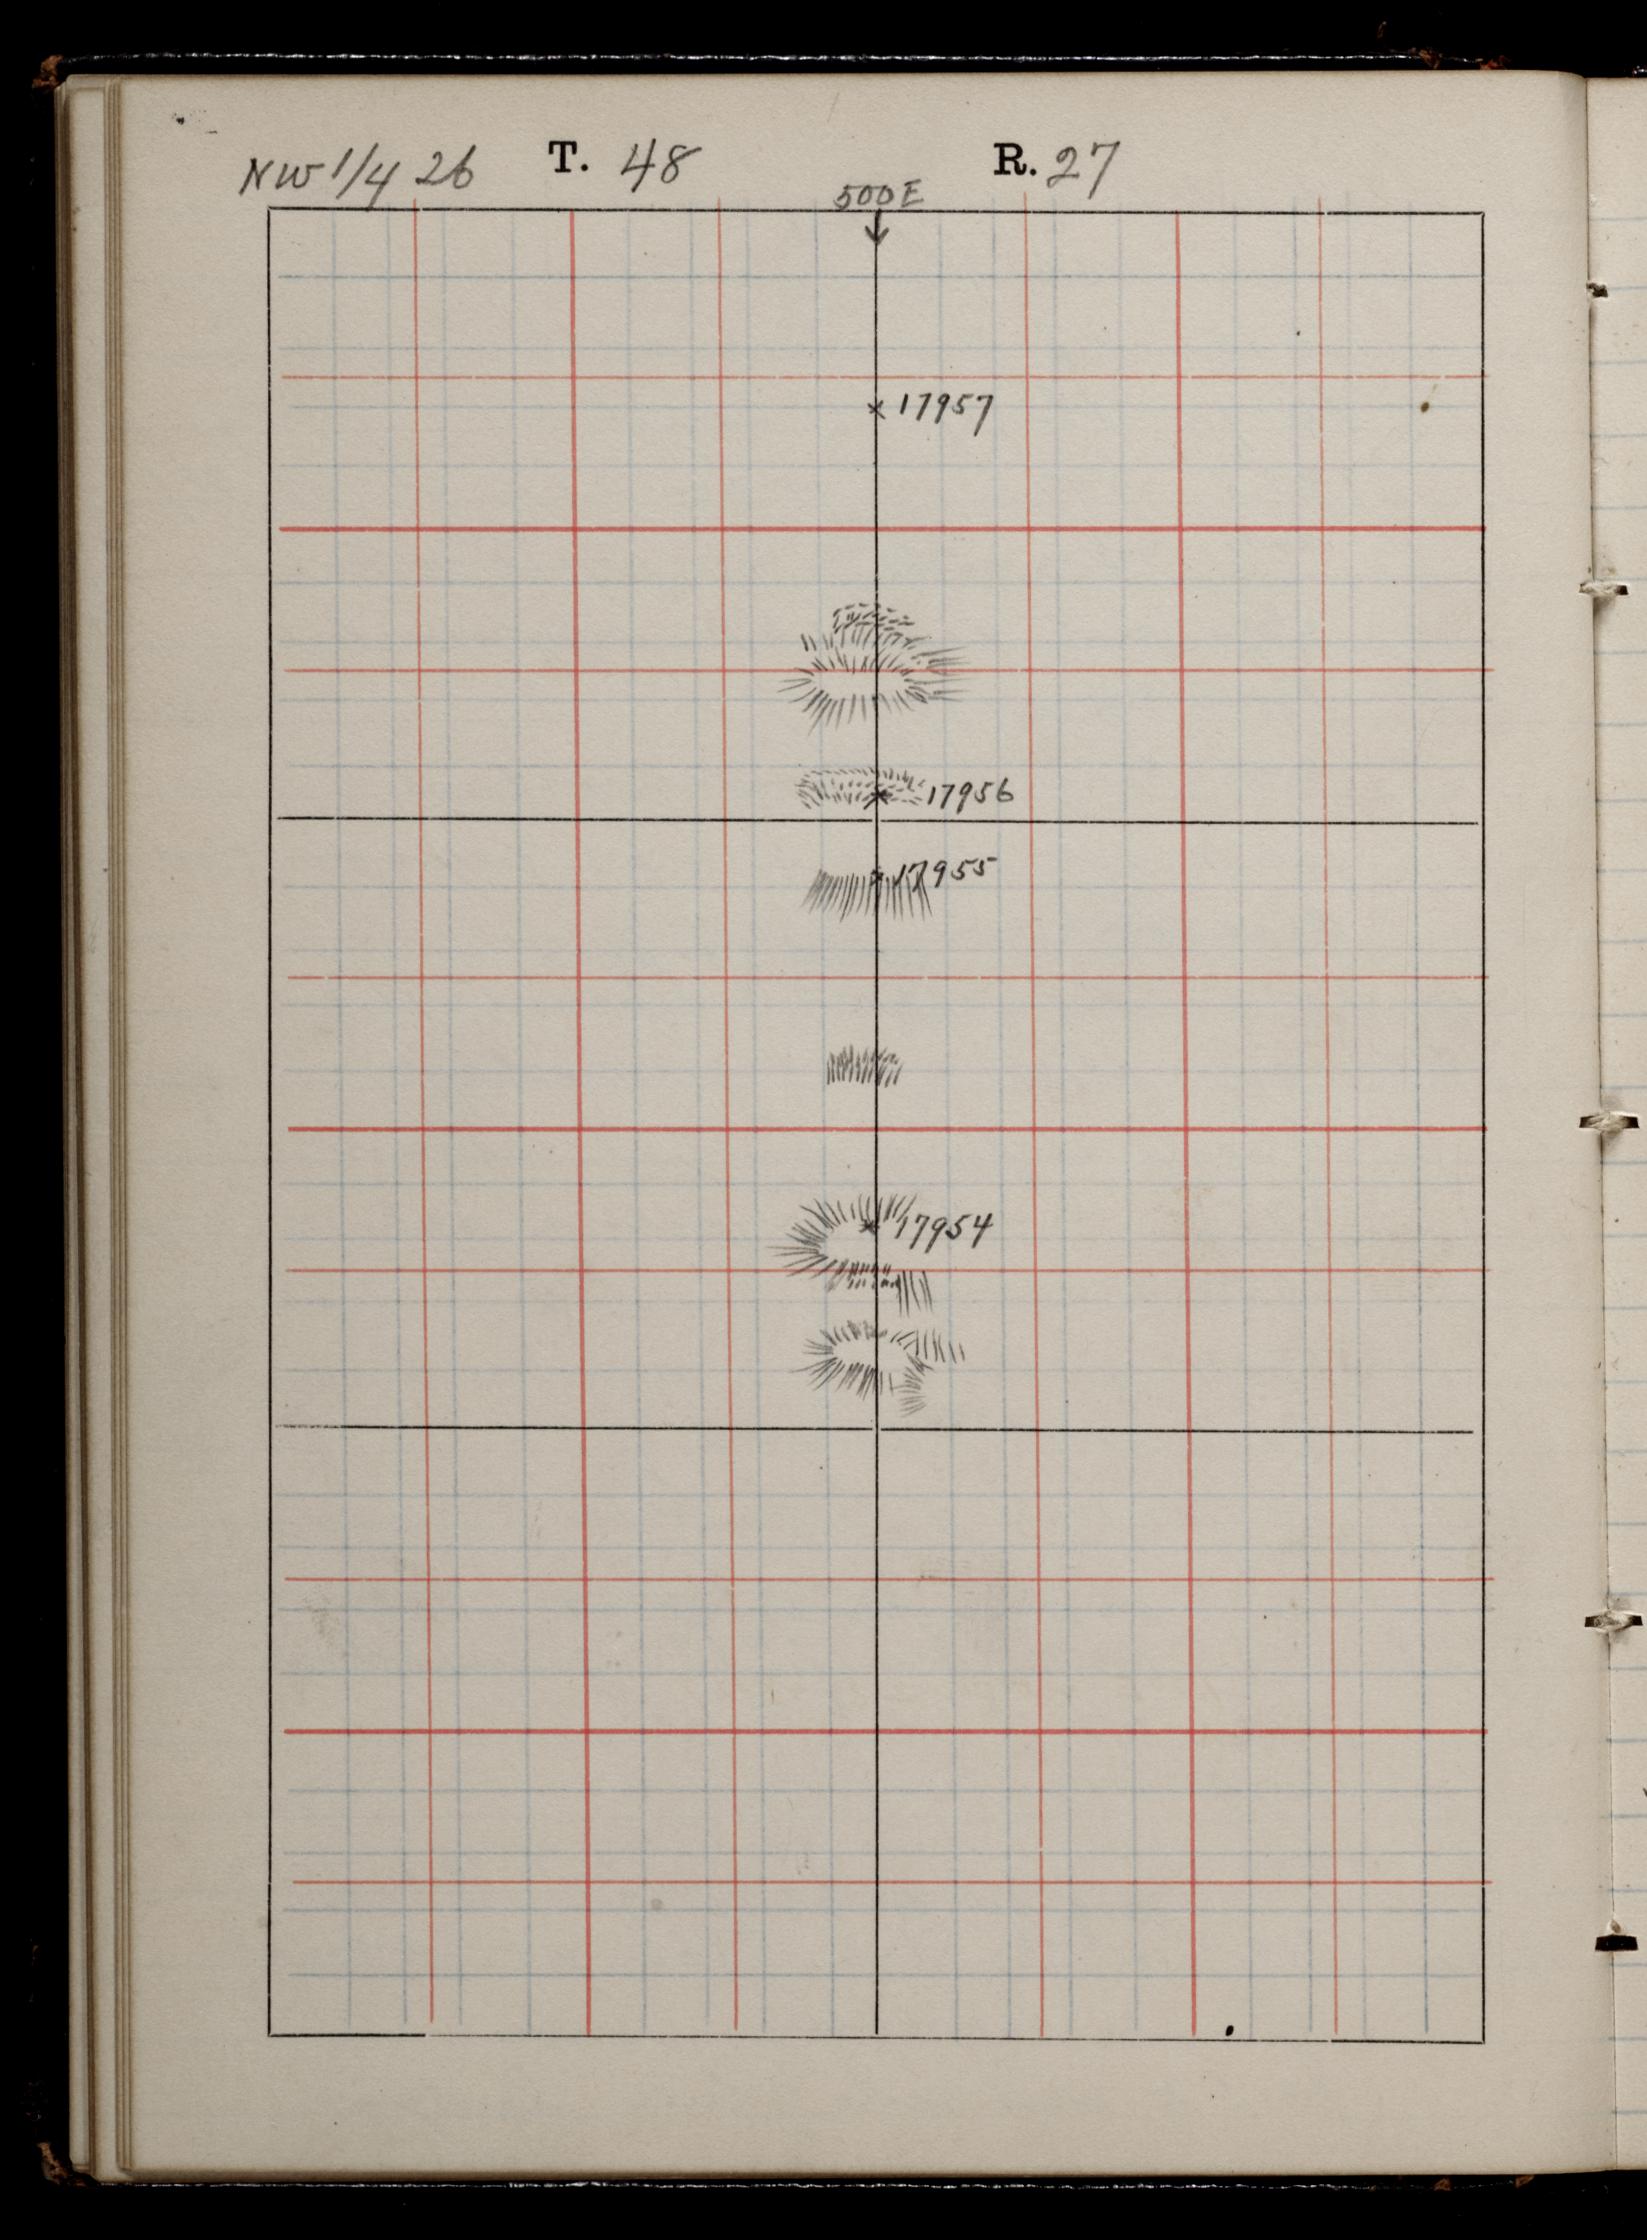 NW 1/4 26 T. 48 R. 27
500E
17957
17956
17955
17954